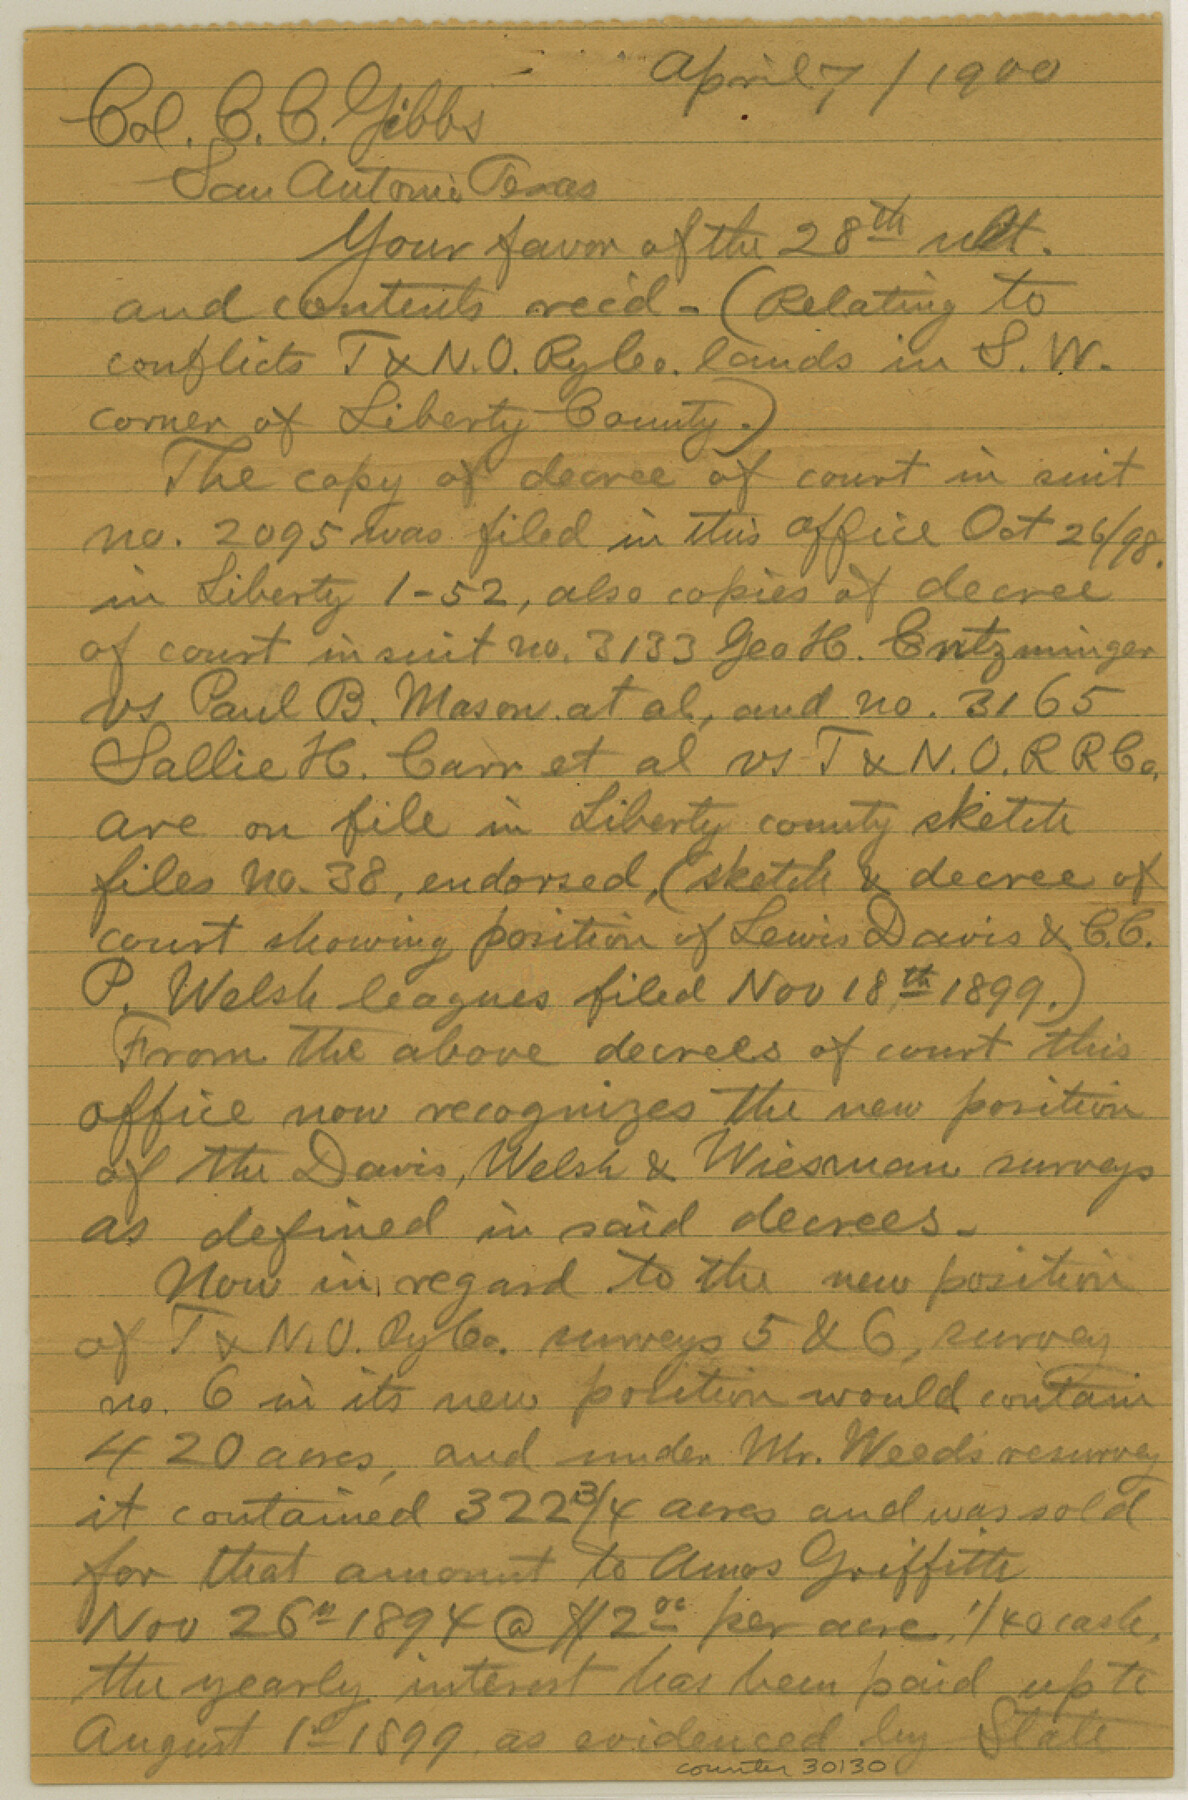 April 7 / 1900
Col. C. C. Gibbs
San Antonio Texas
Your favor of the 28th ult.
and contents rec'd - (Relating to
conflicts T & N.O. Ry Co. lands in S. W.
corner of Liberty County.)
The copy of decree of court in suit
no. 2095 was filed in this office Oct 26/98.
in Liberty 1-52, also copies of decree
of court in suit no. 3133 Geo H. Entzminger
vs Paul B. Mason. et al, and no. 3165
Sallie H. Carr et al vs T & N.O. R R Co.
are on file in Liberty county sketch
files No. 38, endorsed, (sketch & decree of
court showing position of Lewis Davis & C.C.
P. Welsh leagues filed Nov 18th 1899.)
From the above decrees of court this
office now recognizes the new position
of the Davis, Welsh & Wiesman surveys
as defined in said decrees.
Now in regard to the new position
of T & N.O. Ry Co. surveys 5 & 6, survey
no. 6 in its new position would contain
420 acres, and under Mr. Weeds resurvey
it contained 322 3/4 acres and was sold
for that amount to Amos Griffith
Nov 26" 1894 @ $2 00 per acre, 1/40 cash,
the yearly interest has been paid up to
August 1st 1899, as evidenced by State
counter 30130